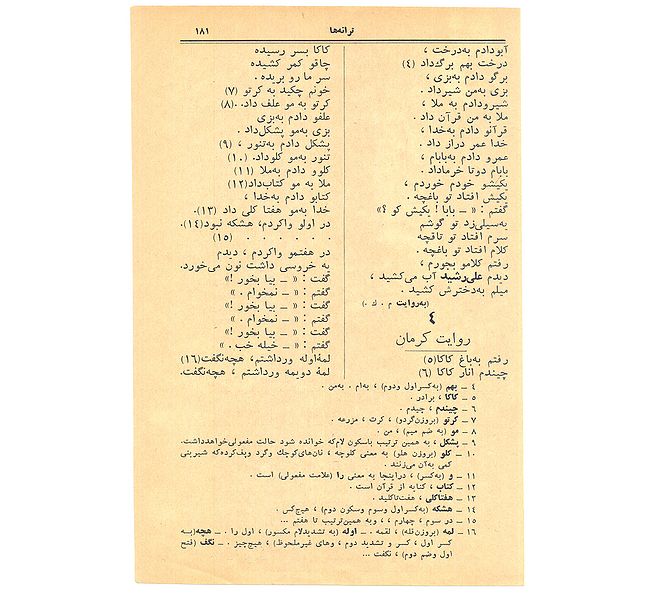 ترانه‌ها
۱۸۱
آبودادم به‌درخت ،
درخت بهم برگ‌داد (۴)
برگو دادم به‌بزی ،
بزی به‌من شیرداد .
شیرودادم به ملا ،
ملا به من قرآن داد .
قرآنو دادم به‌خدا ،
خدا عمر دراز داد .
عمرو دادم به‌بابام ،
بابام دوتا خرماداد .
یکیشو خودم خوردم ،
یکیش افتاد تو باغچه .
گفتم : « ــ بابا ! یکیش کو ؟»
یه‌سیلی‌زد تو گوشم
سرم افتاد تو تاقچه
کلام افتاد تو باغچه .
رفتم کلامو بجورم ،
دیدم علی‌رشید آب می‌کشید ،
میلم به‌دخترش کشید .
(به‌روایت م . ك .)
٤
روایت کرمان
رفتم به‌باغ کاکا(۵)
چیندم انار کاکا (۶)
کاکا بسر رسیده
چاقو کمر کشیده
سر ما رو بریده .
خونم چکید به کرتو (۷)
کرتو به مو علف داد .(۸)
علفو دادم به‌بزی
بزی به‌مو پشکل‌داد .
پشکل دادم به‌تنور ، (۹)
تنور به‌مو کلوداد. (۱۰)
کلوو دادم به‌ملا (۱۱)
ملا به مو کتاب‌داد(۱۲)
کتابو دادم به‌خدا ،
خدا به‌مو هفتا کلی داد (۱۳).
در اولو واکردم، هشکه نبود(۱۴).
. . . . . . (۱۵)
در هفتمو واکردم ، دیدم
یه خروسی داشت نون می‌خورد.
گفت : « ــ بیا بخور !»
گفتم : « ــ نمخوام . »
گفت : « ــ بیا بخور !»
گفتم : « ــ نمخوام . »
گفت : « ــ بیا بخور !»
گفتم : « ــ خیله خب . »
لمهٔ‌اوله ورداشتم، هچه‌نگفت(۱۶)
لمهٔ دویمه ورداشتم ، هچه‌نگفت.
۴ ــ بهم (به‌کسراول ودوم) ، به‌ام . به‌من .
۵ ــ کاکا ، برادر .
۶ ــ چیندم ، چیدم .
۷ ــ کرتو (بروزن‌گردو) ، کرت ، مزرعه .
۸ ــ مو (به ضم میم) ، من .
۹ ــ پشکل ، به همین ترتیب باسکون لام‌که خوانده شود حالت مفعولی‌خواهدداشت.
۱۰ ــ کلو (بروزن هلو) به معنی کلوچه ، نان‌های‌کوچك وگرد وپف‌کرده‌که شیرینی
کمی به‌آن می‌زنند .
۱۱ ــ و (به‌کسر) ، دراینجا به معنی را (علامت مفعولی) است .
۱۲ ــ کتاب ، کنایه از قرآن است .
۱۳ ــ هفتاکلی ، هفت‌تاکلید .
۱۴ ــ هشکه (به‌کسراول وسوم وسکون دوم) ، هیچ‌کس .
۱۵ ــ در سوم ، چهارم ، ، وبه همین‌ترتیب تا هفتم ...
۱۶ ــ لمه (بروزن‌تله) ، لقمه . ــ اوله (به تشدیدلام مکسور) ، اول را . ــ هچه(به
کسر اول ، کسر و تشدید دوم ، وهای غیرملحوظ) ، هیچ‌چیز . ــ نگف (فتح
اول وضم دوم) ، نگفت ...